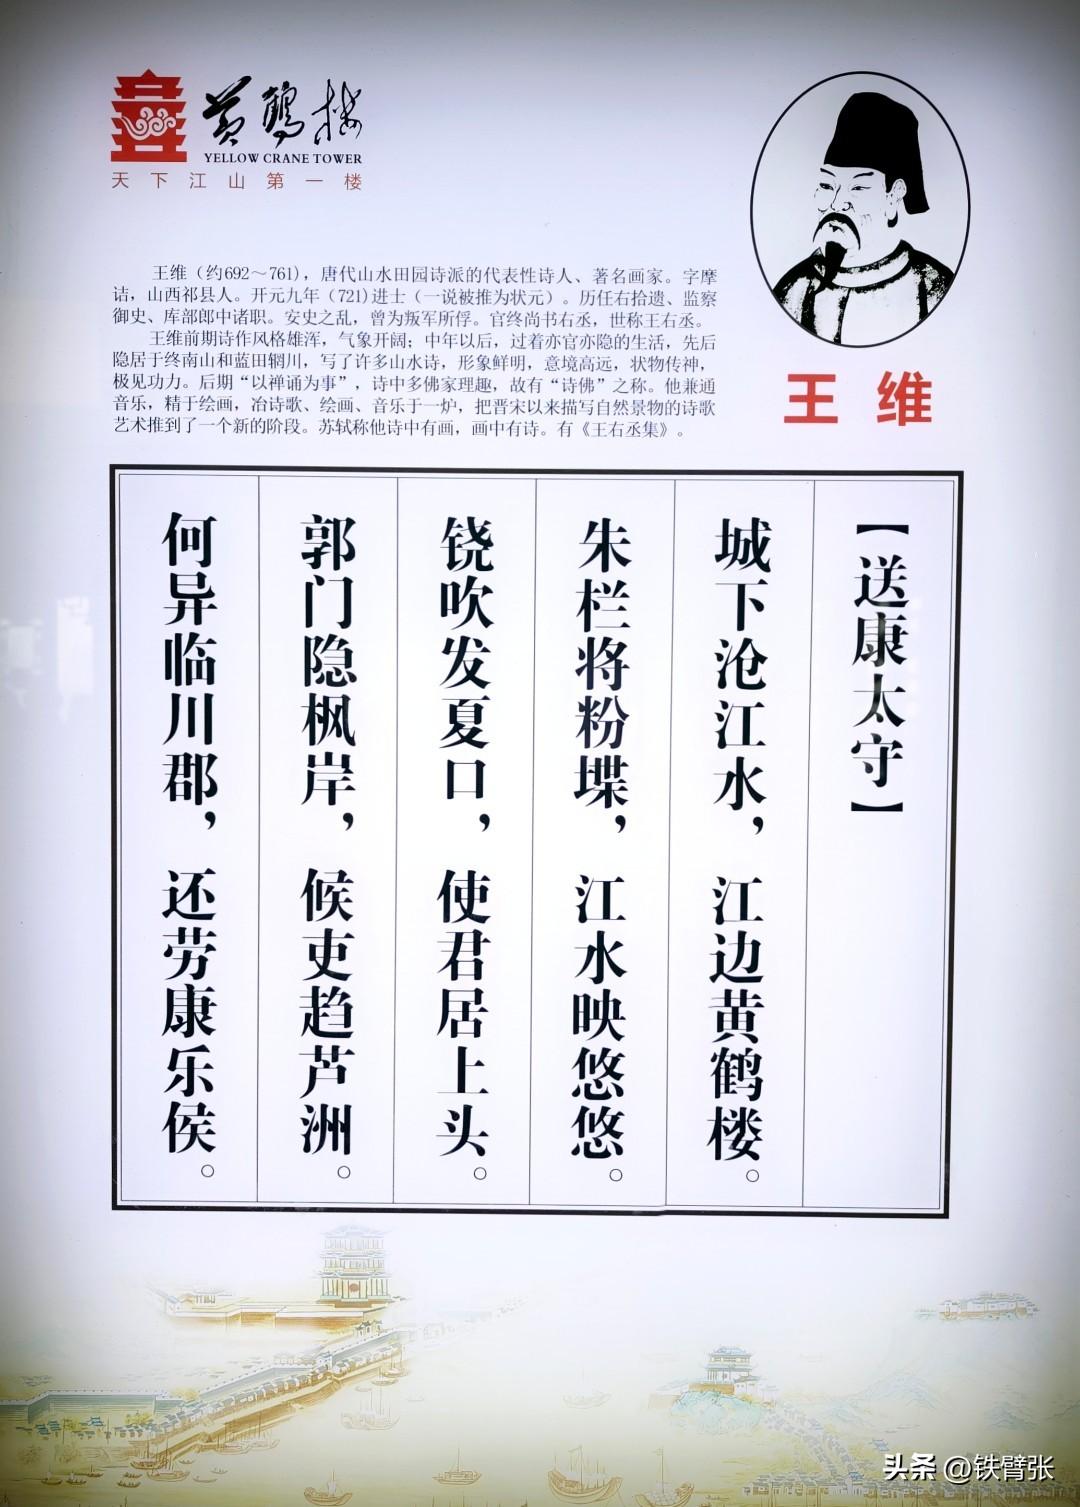 黄鹤楼
YELLOW CRANE TOWER
天下江山第一楼
王维（约692～761），唐代山水田园诗派的代表性诗人、著名画家。字摩
诘，山西祁县人。开元九年（721)进士（一说被推为状元）。历任右拾遗、监察
御史、库部郎中诸职。安史之乱，曾为叛军所俘。官终尚书右丞，世称王右丞。
王维前期诗作风格雄浑，气象开阔；中年以后，过着亦官亦隐的生活，先后
隐居于终南山和蓝田辋川，写了许多山水诗，形象鲜明，意境高远，状物传神，
极见功力。后期“以禅诵为事”，诗中多佛家理趣，故有“诗佛”之称。他兼通
音乐，精于绘画，冶诗歌、绘画、音乐于一炉，把晋宋以来描写自然景物的诗歌
艺术推到了一个新的阶段。苏轼称他诗中有画，画中有诗。有《王右丞集》。
王维
【送康太守】
城下沧江水，江边黄鹤楼。
朱栏将粉堞，江水映悠悠。
铙吹发夏口，使君居上头。
郭门隐枫岸，候吏趋芦洲。
何异临川郡，还劳康乐侯。
头条 @铁臂张